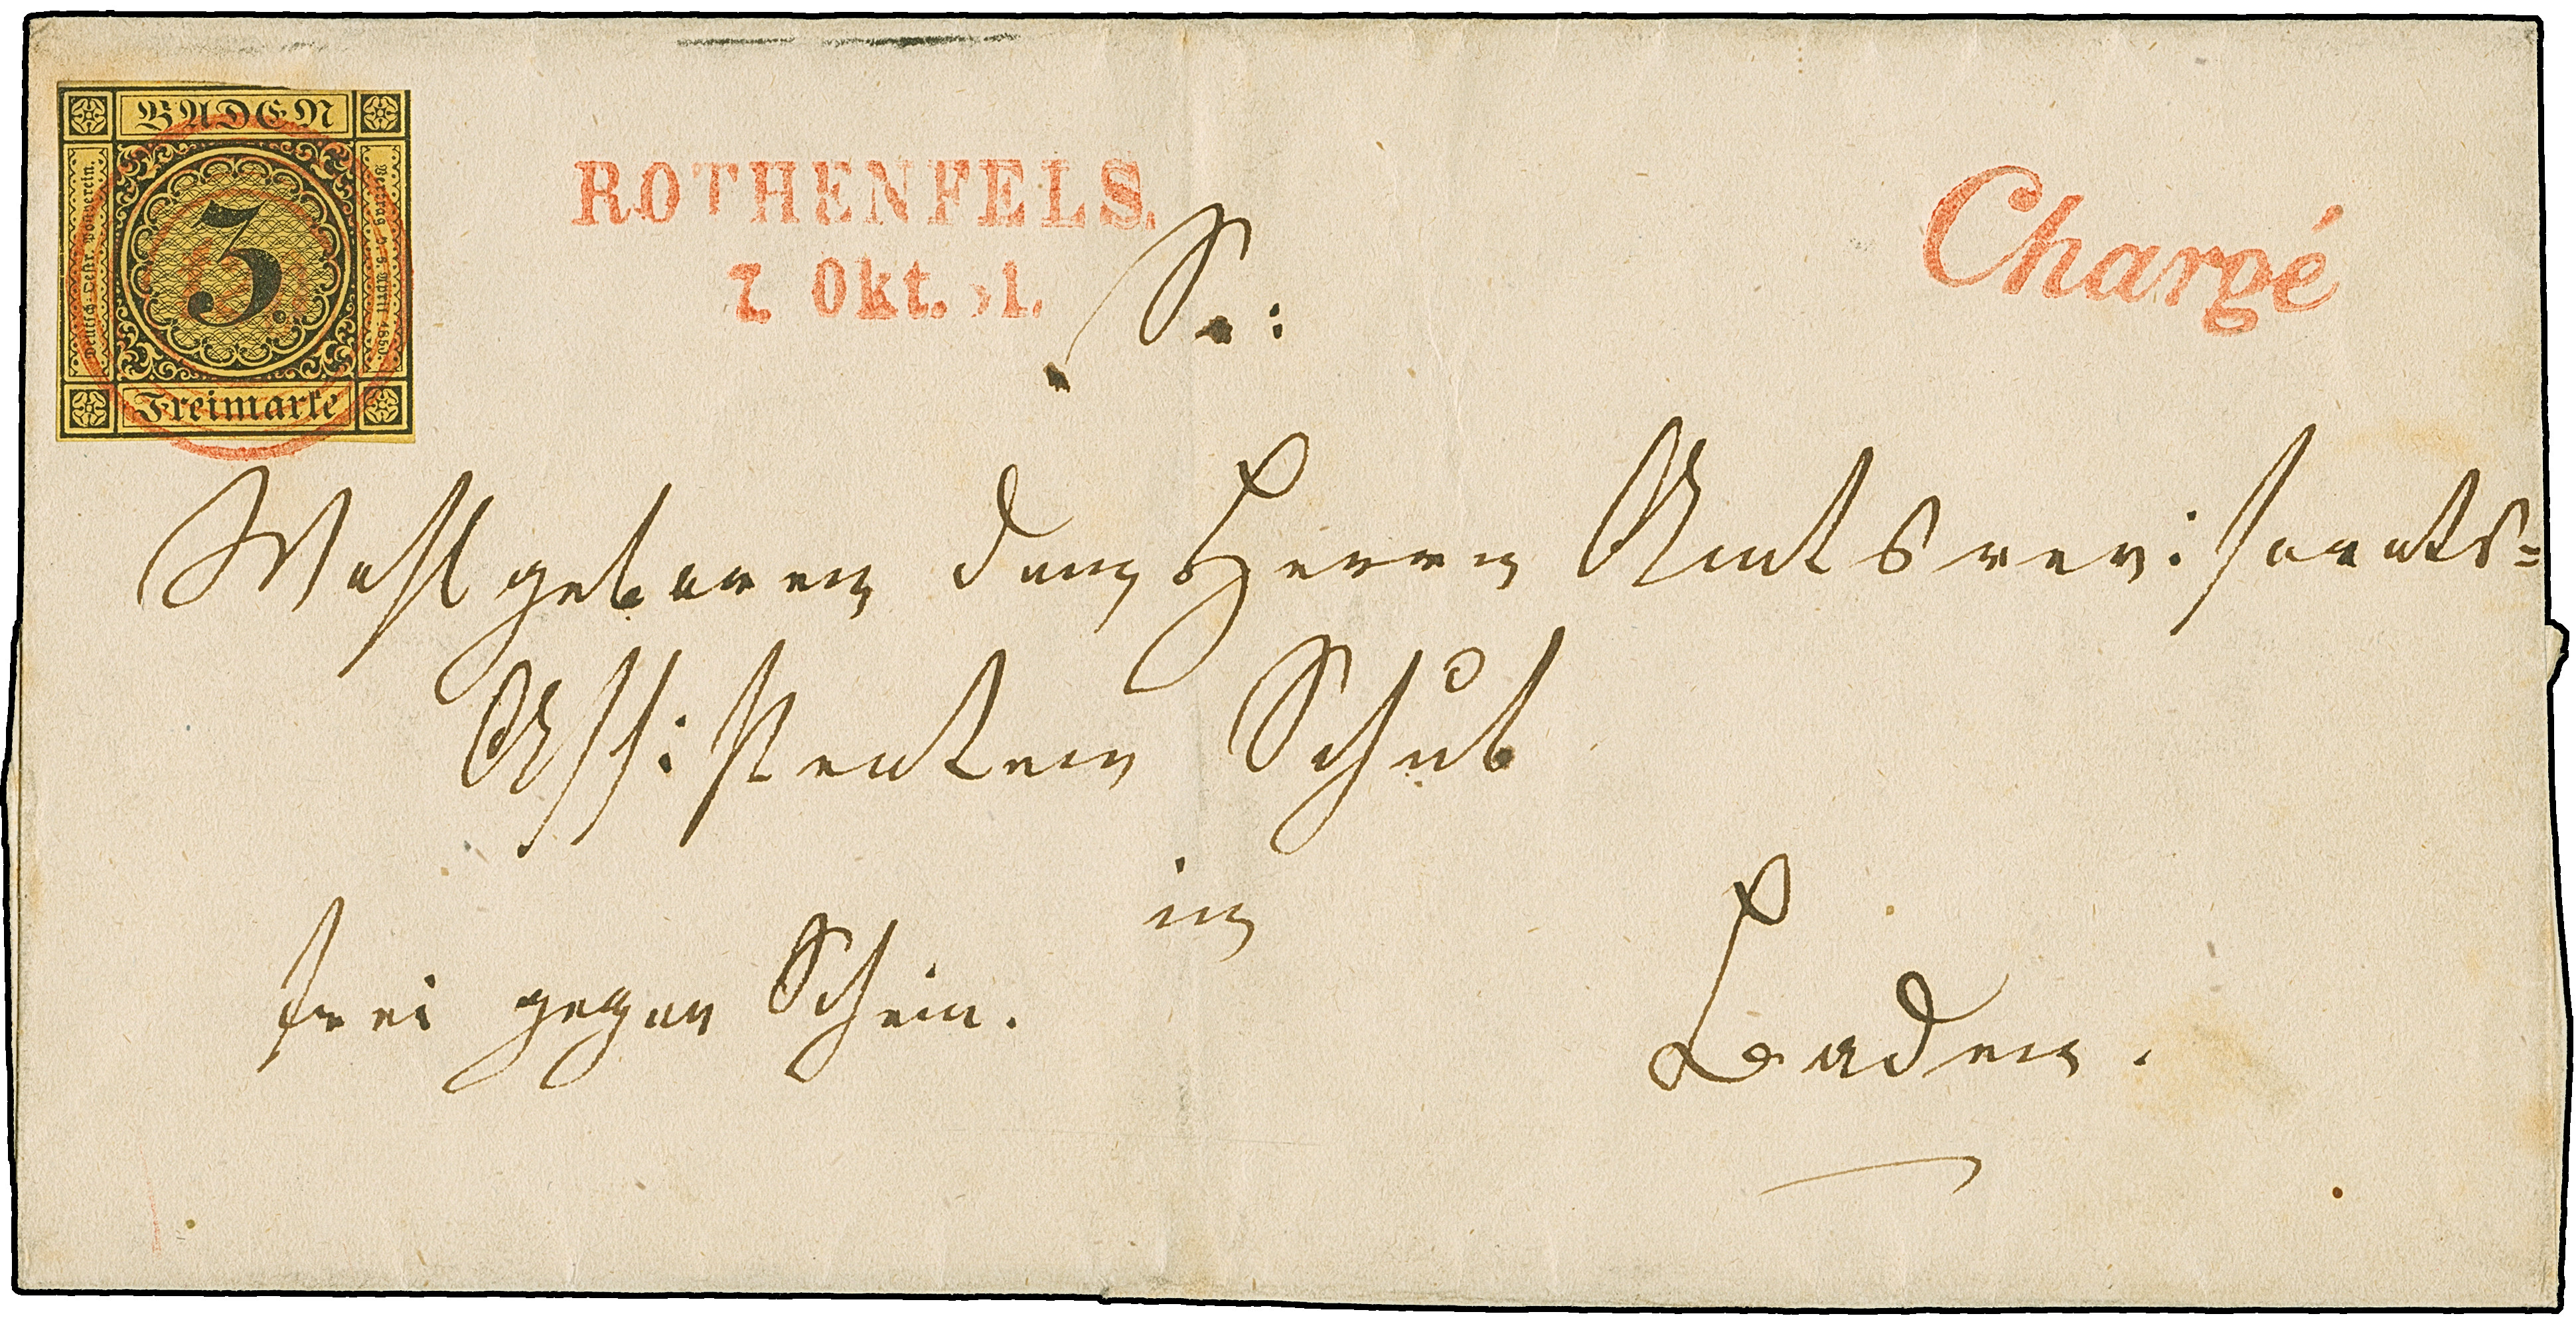 BADEN
Deutsch-Oestr. Postverein.
3.
Vertrag v. 6. April 1850.
Freimarke
ROTHENFELS.
7. Okt. 51.
Chargé
Sr:
Wohlgeboren dem Herrn Amtsrevisorats=
Assistenten Schub
in
frei gegen Schein.
Baden.